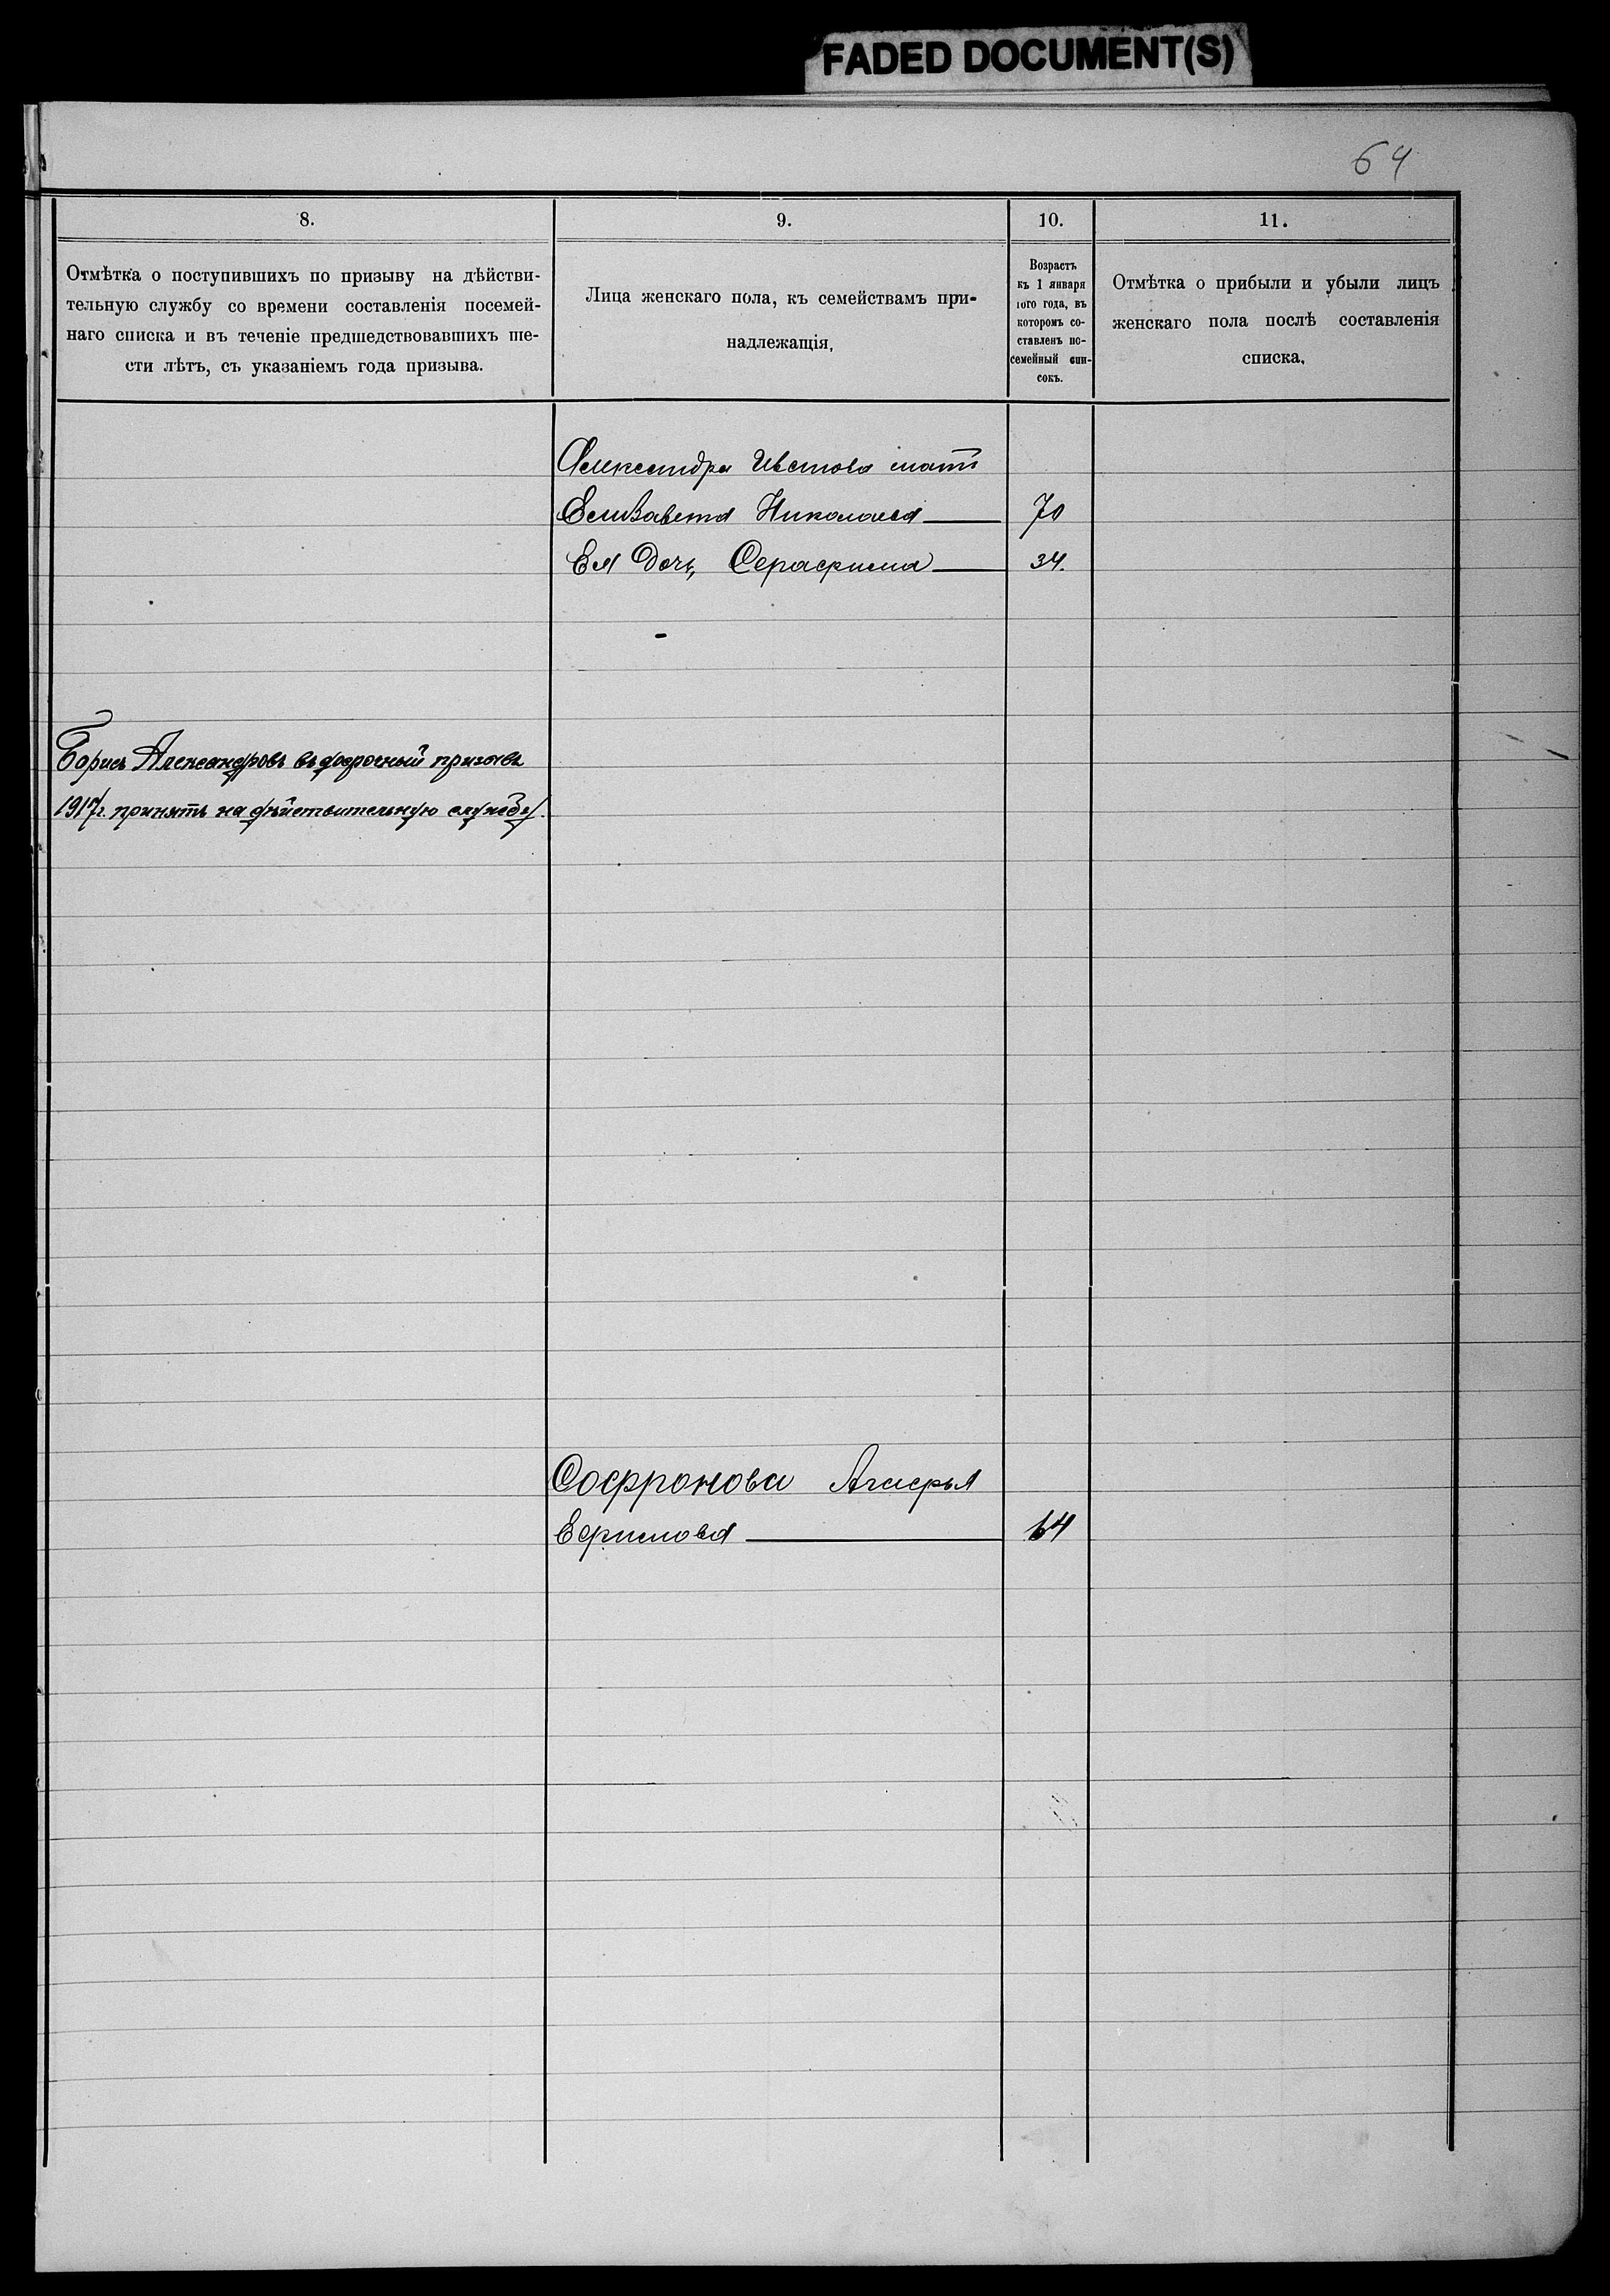 FADED DOCUMENT(S)
64
8.
9.
10.
11.
Отмѣтка о поступившихъ по призыву на дѣйстви-
тельную службу со времени составленія посемей-
наго списка и въ теченіе предшедствовавшихъ ше-
сти лѣтъ, съ указаніемъ года призыва.
Лица женскаго пола, къ семействамъ при-
надлежащія,
Возрастъ
къ 1 января
того года, въ
которомъ со-
ставленъ по-
семейный спи-
сокъ.
Отмѣтка о прибыли и убыли лицъ
женскаго пола послѣ составленія
списка.
Александра мать
Елизавета Николаева 70
Ея дочь, Серафима 34.
Борисъ Александровъ въ досрочный призывъ
1917г. принятъ на дѣйствительную службу.
Софронова Агафья
Ефимова 64